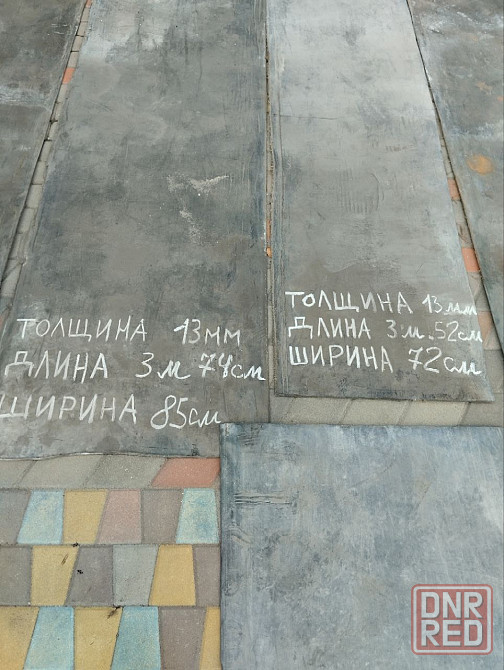 ТОЛЩИНА 13мм
ДЛИНА 3м 74см
ШИРИНА 85см
ТОЛЩИНА 13мм
ДЛИНА 3м.52см
ШИРИНА 72см
DNR
RED